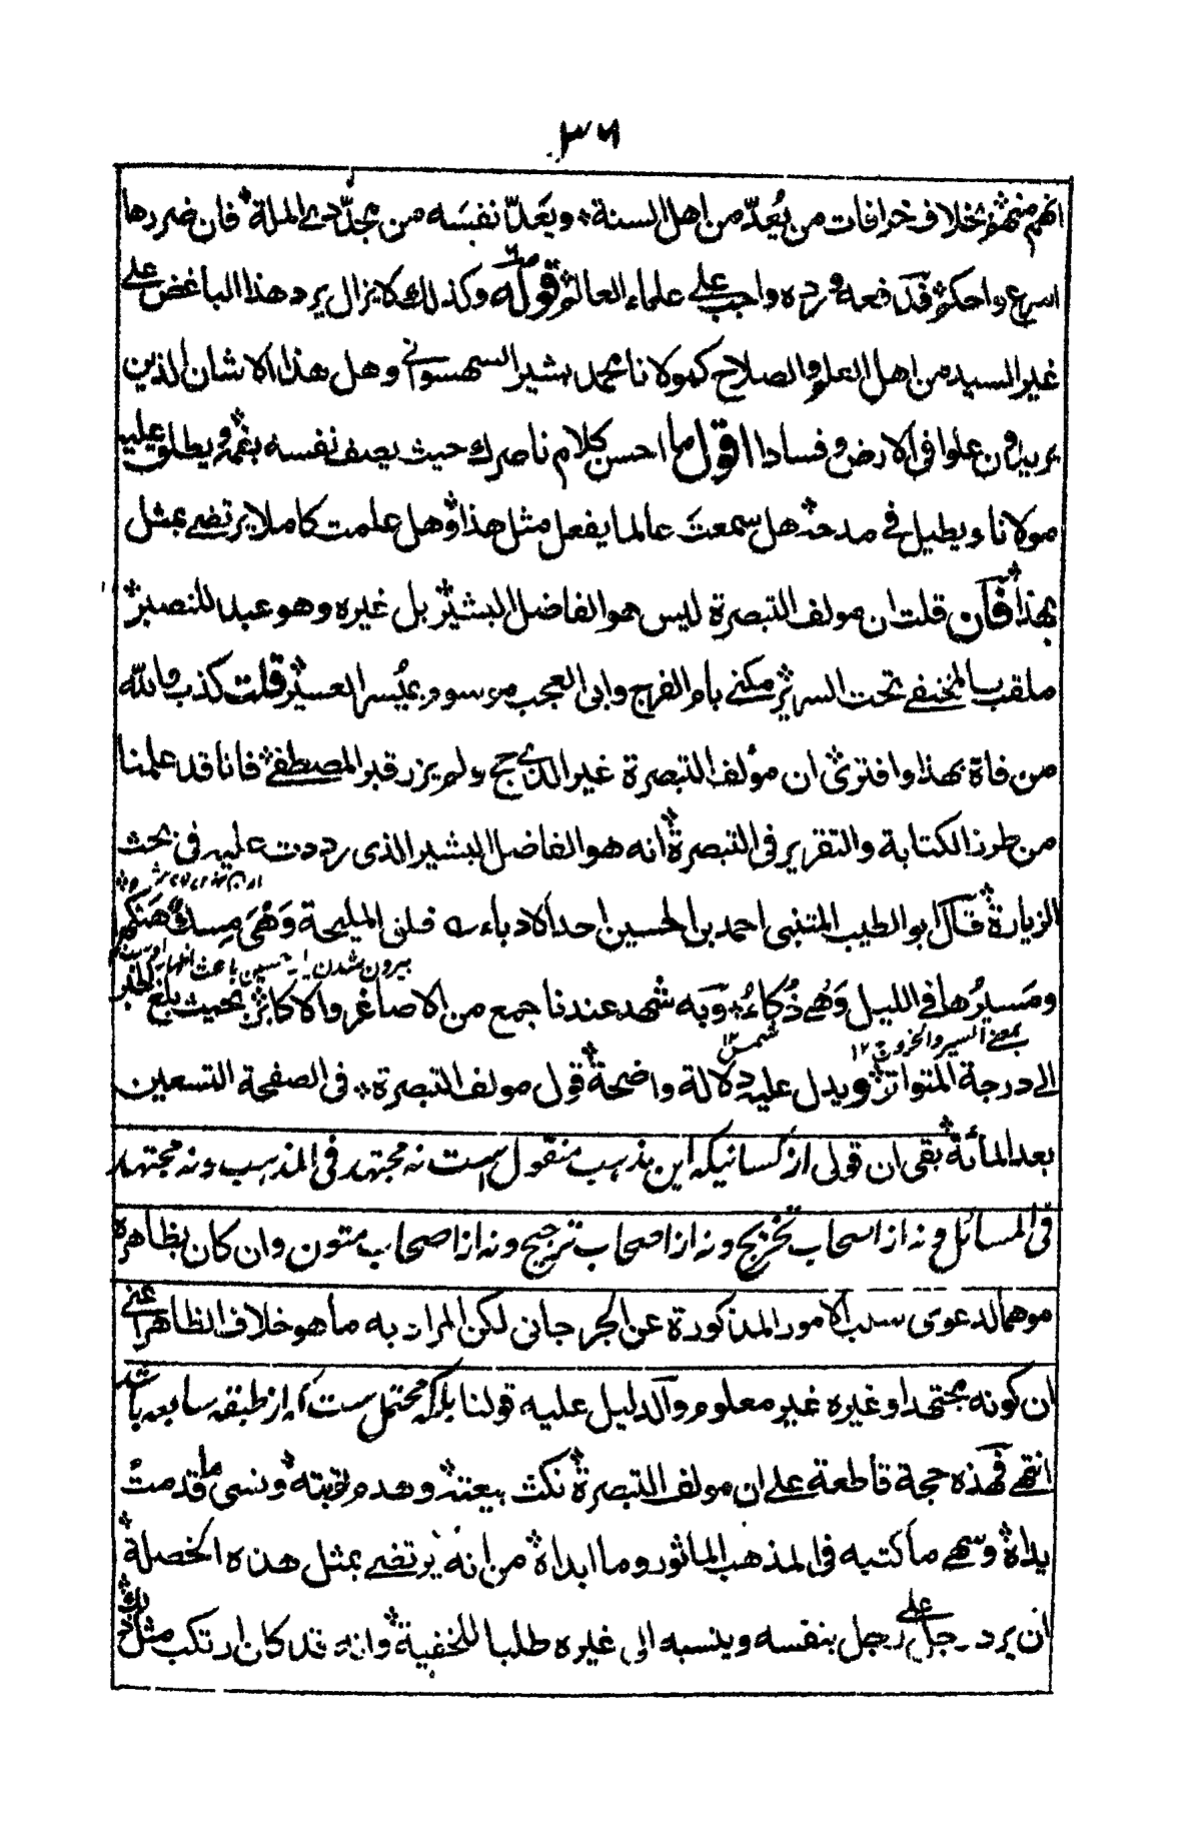 ٣٦
انهم منهم بخلاف خرافات من يُعدّ من اهل السنة ويَعدّ نفسَه من مجدّدی الملة فان ضررها
اسرع واحكم فدفعه ورده واجب علی علماء العالم قوله وكذلك لا يزال يرد هذا الباغض علی
غير السيد من اهل العلم والصلاح كمولانا محمد بشير السهسوانی وهل هذا الا شان الذين
يريدون علوا فی الارض وفسادا اقول ما احسن كلام ناصرك حيث يصف نفسه بنفسه ويطلق عليه
مولانا ويطيل فی مدحه هل سمعتَ عالما يفعل مثل هذا وهل علمت كاملا يرتضی بمثل
بهذا فان قلت ان مولف التبصرة ليس هو الفاضل البشير بل غيره وهو عبد للنصير
ملقب بالمختفی تحت السرير مكنی بابی الفرج وابی العجب موسوم بميُسر العسير قلت كذب والله
من فاه بهذا وافتری ان مؤلف التبصرة غير الذی حج ولم يزر قبر المصطفی فانا قد علمنا
من طرز الكتابة والتقرير فی التبصرة انه هو الفاضل البشير الذی رددت عليه فی بحث
الزيارة قال ابو الطيب المتنبی احمد بن الحسين احد الادباء قلق المليحة وَهْیَ مِسكٌ هَتكُها
بيرون شدن
ومَسيرُها فی الليل وَهْی ذُكاءُ وبه شهد عندنا جمع من الاصاغر والاكابر بحيث بلغ الخبر
بمعنی السير والخروج ١٢
شمس ١٢
الی درجة المتواتر ويدل عليه دلالة واضحة قول مولف التبصرة فی الصفحة التسعين
بعد المائة بقی ان قولی از كسانيكه اين مذہب منقول ست نه مجتهد فی المذہب ونه مجتهد
فی المسائل ونه از اصحاب تخريج ونه از اصحاب ترجيح ونه از اصحاب متون وان كان بظاهره
موهما لدعوی سلب الامور المذكورة عن الجرجانی لكن المراد به ما هو خلاف الظاهر اعنی
ان كونه مجتهدا وغيره غير معلوم والدليل عليه قولنا بلكه محتمل ست كه از طبقه سابعه باشد
انتهی فهذه حجة قاطعة علی ان مولف التبصرة نكث بيعته وهدم توبته ونسی ما قدمت
يداه وسهی ما كتبه فی المذهب الماثور وما ابداه من انه يرتضی بمثل هذه الخصلة
ان يرد رجل علی رجل بنفسه وينسبه الی غيره طلبا للخفية وانه قد كان ارتكب مثل ذلك